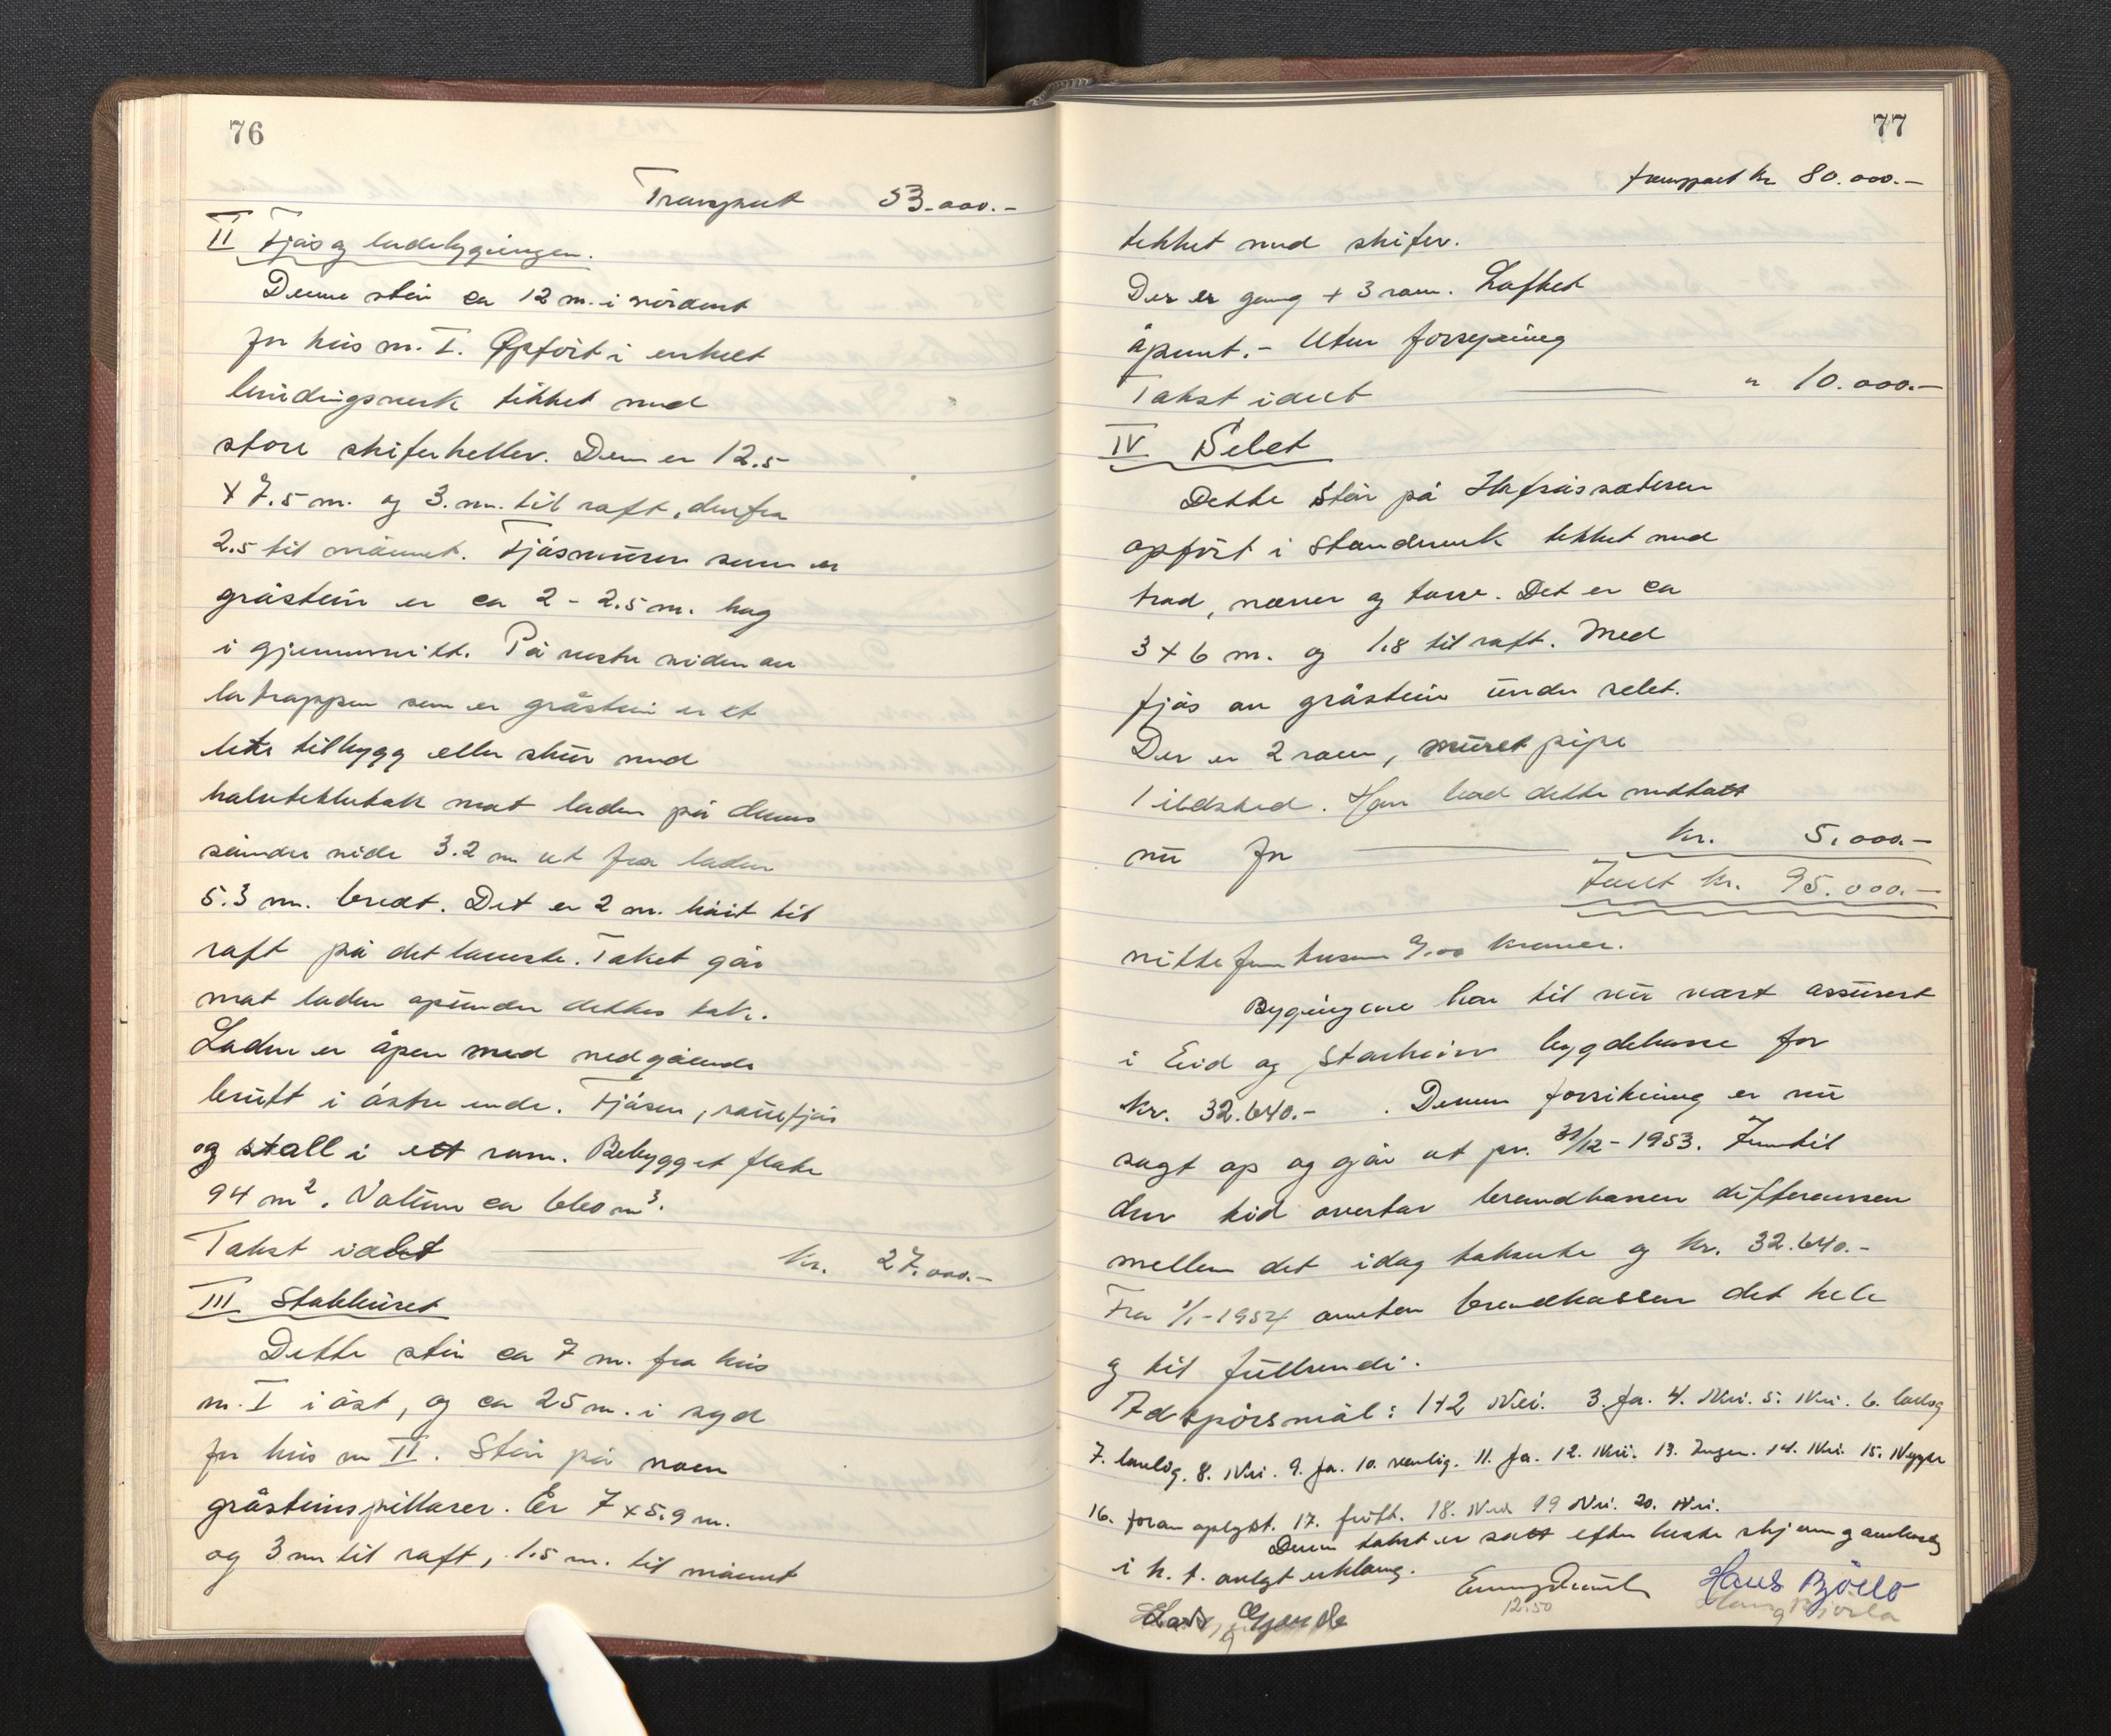 76
Transport 53.000.-
II Fjøs og ladebygningen.
Denne står ca 12 m. i nordaust
for hus nr. I. Oppført i enkelt
bindingsverk tekket med
store skiferheller. Den er 12.5
x 7.5 m. og 3. m. til raft, derfra
2.5 til mønnet. Fjøsmuren som er
gråstein er ca 2 - 2.5 m. høg
i gjennemsnitt. På vestre siden av
låtrappen som er gråstein er et
lite tilbygg eller skur med
halvtekketak mot laden på denns
søndre side 3.2 m ut fra laden
5.3 m. bredt. Det er 2 m. høit til
raft på det laveste. Taket går
mot laden opunder dettes tak.
Laden er åpen med nedgående
brutt i østre ende. Fjøsen, sauefjøs
og stall i ett rom. Bebygget flate
94 m². Volum ca 660 m³.
Takst i alt kr. 27.000.-
III Stabburet
Dette står ca 7 m. fra hus
nr. I i øst, og ca 25 m. i syd
for hus nr II. Står på noen
gråsteinspillarer. Er 7 x 5.9 m.
og 3 m til raft, 1.5 m. til mønnet
77
transport kr 80.000.-
tekket med skifer.
Der er gang + 3 rom. Loftet
åpent.- Uten forsyning
Takst i alt " 10.000.-
IV Selet
Dette står på Hafsåssæteren
opført i standverk tekket med
trod, never og torv. Det er ca
3 x 6 m. og 1.8 til raft. Med
fjøs av gråstein under selet.
Der er 2 rom, muret pipe
1 ildsted. Han bad dette medtatt
nu for kr. 5.000.-
I alt kr. 95.000.-
nittefem tusen 0/00 kroner.
Bygningene har til nu vært assurert
i Eid og Starheim bygdekasse for
kr. 32.640.- . Denne forsikring er nu
sagt op og går ut pr. 31/12-1953. Inntil
den tid overtar brandkassen differansen
mellem det idag takserte og kr. 32.640.-
Fra 1/1-1954 overtar brandkassen det hele
og til fullverdi.
Ad spørsmål: 1+2 Nei. 3. Ja. 4. Nei. 5. Nei. 6. lovlig
7. lovlig. 8. Nei. 9. Ja. 10. vanlig. 11. Ja. 12. Nei. 13. Ingen. 14. Nei. 15. Bygger
16. foran oplyst. 17. fritt. 18. Nei 19 Nei. 20. Nei.
Denne takst er satt efter beste skjønn g
i h. t. avlagt erklæring.
Hans Bjørlo
12.50